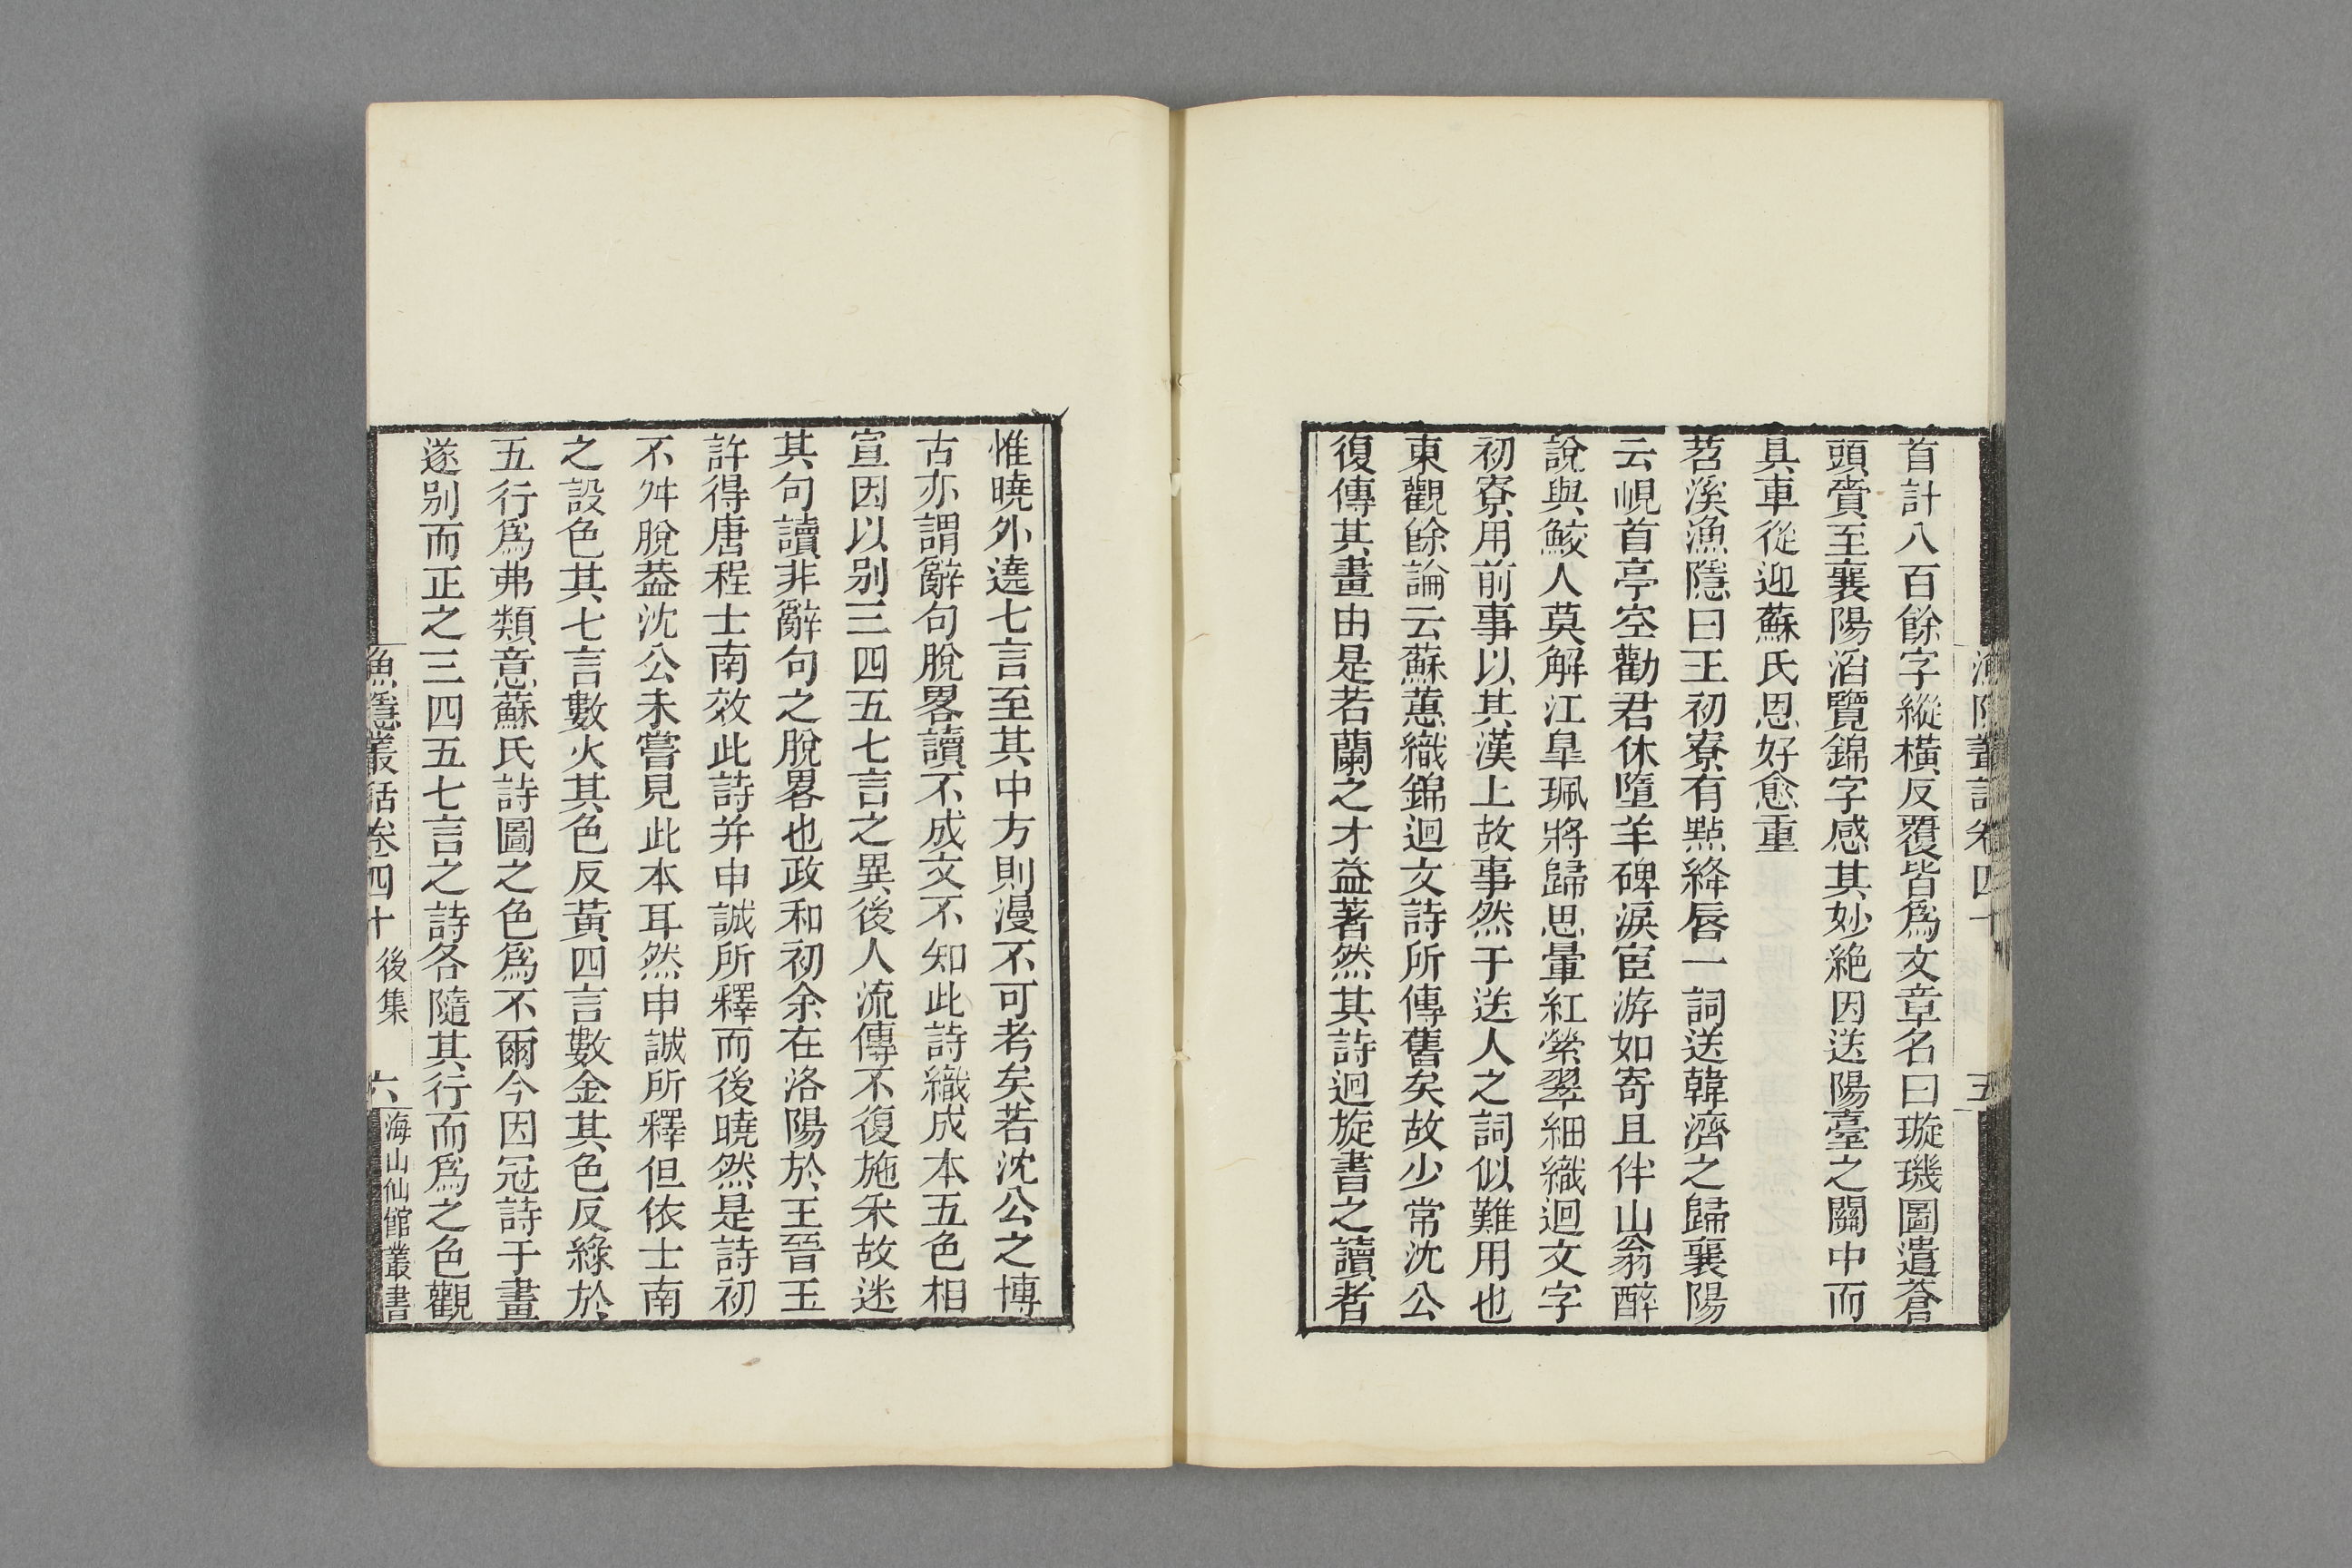 首計八百餘字縱橫反覆皆爲文章名曰璇璣圖遣蒼
頭賫至襄陽滔覽錦字感其妙絶因送陽臺之關中而
具車從迎蘇氏恩好愈重
苕溪漁隱曰王初寮有點絳唇一詞送韓濟之歸襄陽
云峴首亭空勸君休墮羊碑淚宦游如寄且伴山翁醉
說與鮫人莫解江臯珮將歸思暈紅縈翠細織迴文字
初寮用前事以其漢上故事然于送人之詞似難用也
東觀餘論云蘇蕙織錦迴文詩所傳舊矣故少常沈公
復傳其畫由是若蘭之才益著然其詩迴旋書之讀者
惟曉外遶七言至其中方則漫不可考矣若沈公之博
古亦謂辭句脫畧讀不成文不知此詩織成本五色相
宣因以别三四五七言之異後人流傳不復施采故迷
其句讀非辭句之脫畧也政和初余在洛陽於王晉玉
許得唐程士南效此詩并申誠所釋而後曉然是詩初
不舛脫葢沈公未嘗見此本耳然申誠所釋但依士南
之設色其七言數火其色反黃四言數金其色反綠於
五行爲弗類意蘇氏詩圖之色爲不爾今因冠詩于畫
遂别而正之三四五七言之詩各隨其行而爲之色觀
漁隱叢話卷四十 後集 六 海山仙館叢書
漁隱叢話卷四十 五